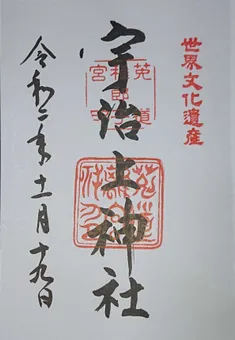 世界文化遺産
宇治上神社
令和二年十一月十九日